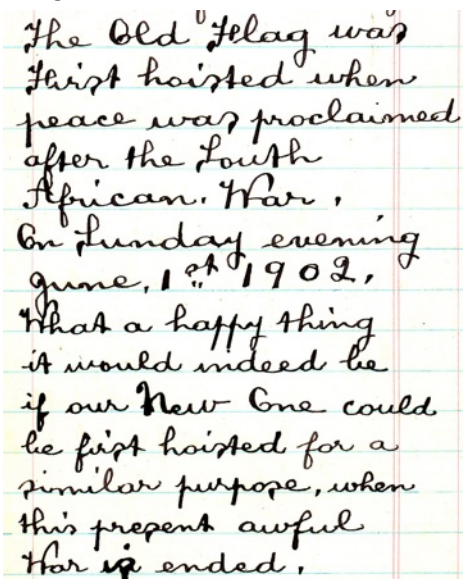 The Old Flag was
First hoisted when
peace was proclaimed
after the South
African. War.
On Sunday evening
June, 1st 1902.
What a happy thing
it would indeed be
if our New One could
be first hoisted for a
similar purpose, when
this present awful
War is ended.